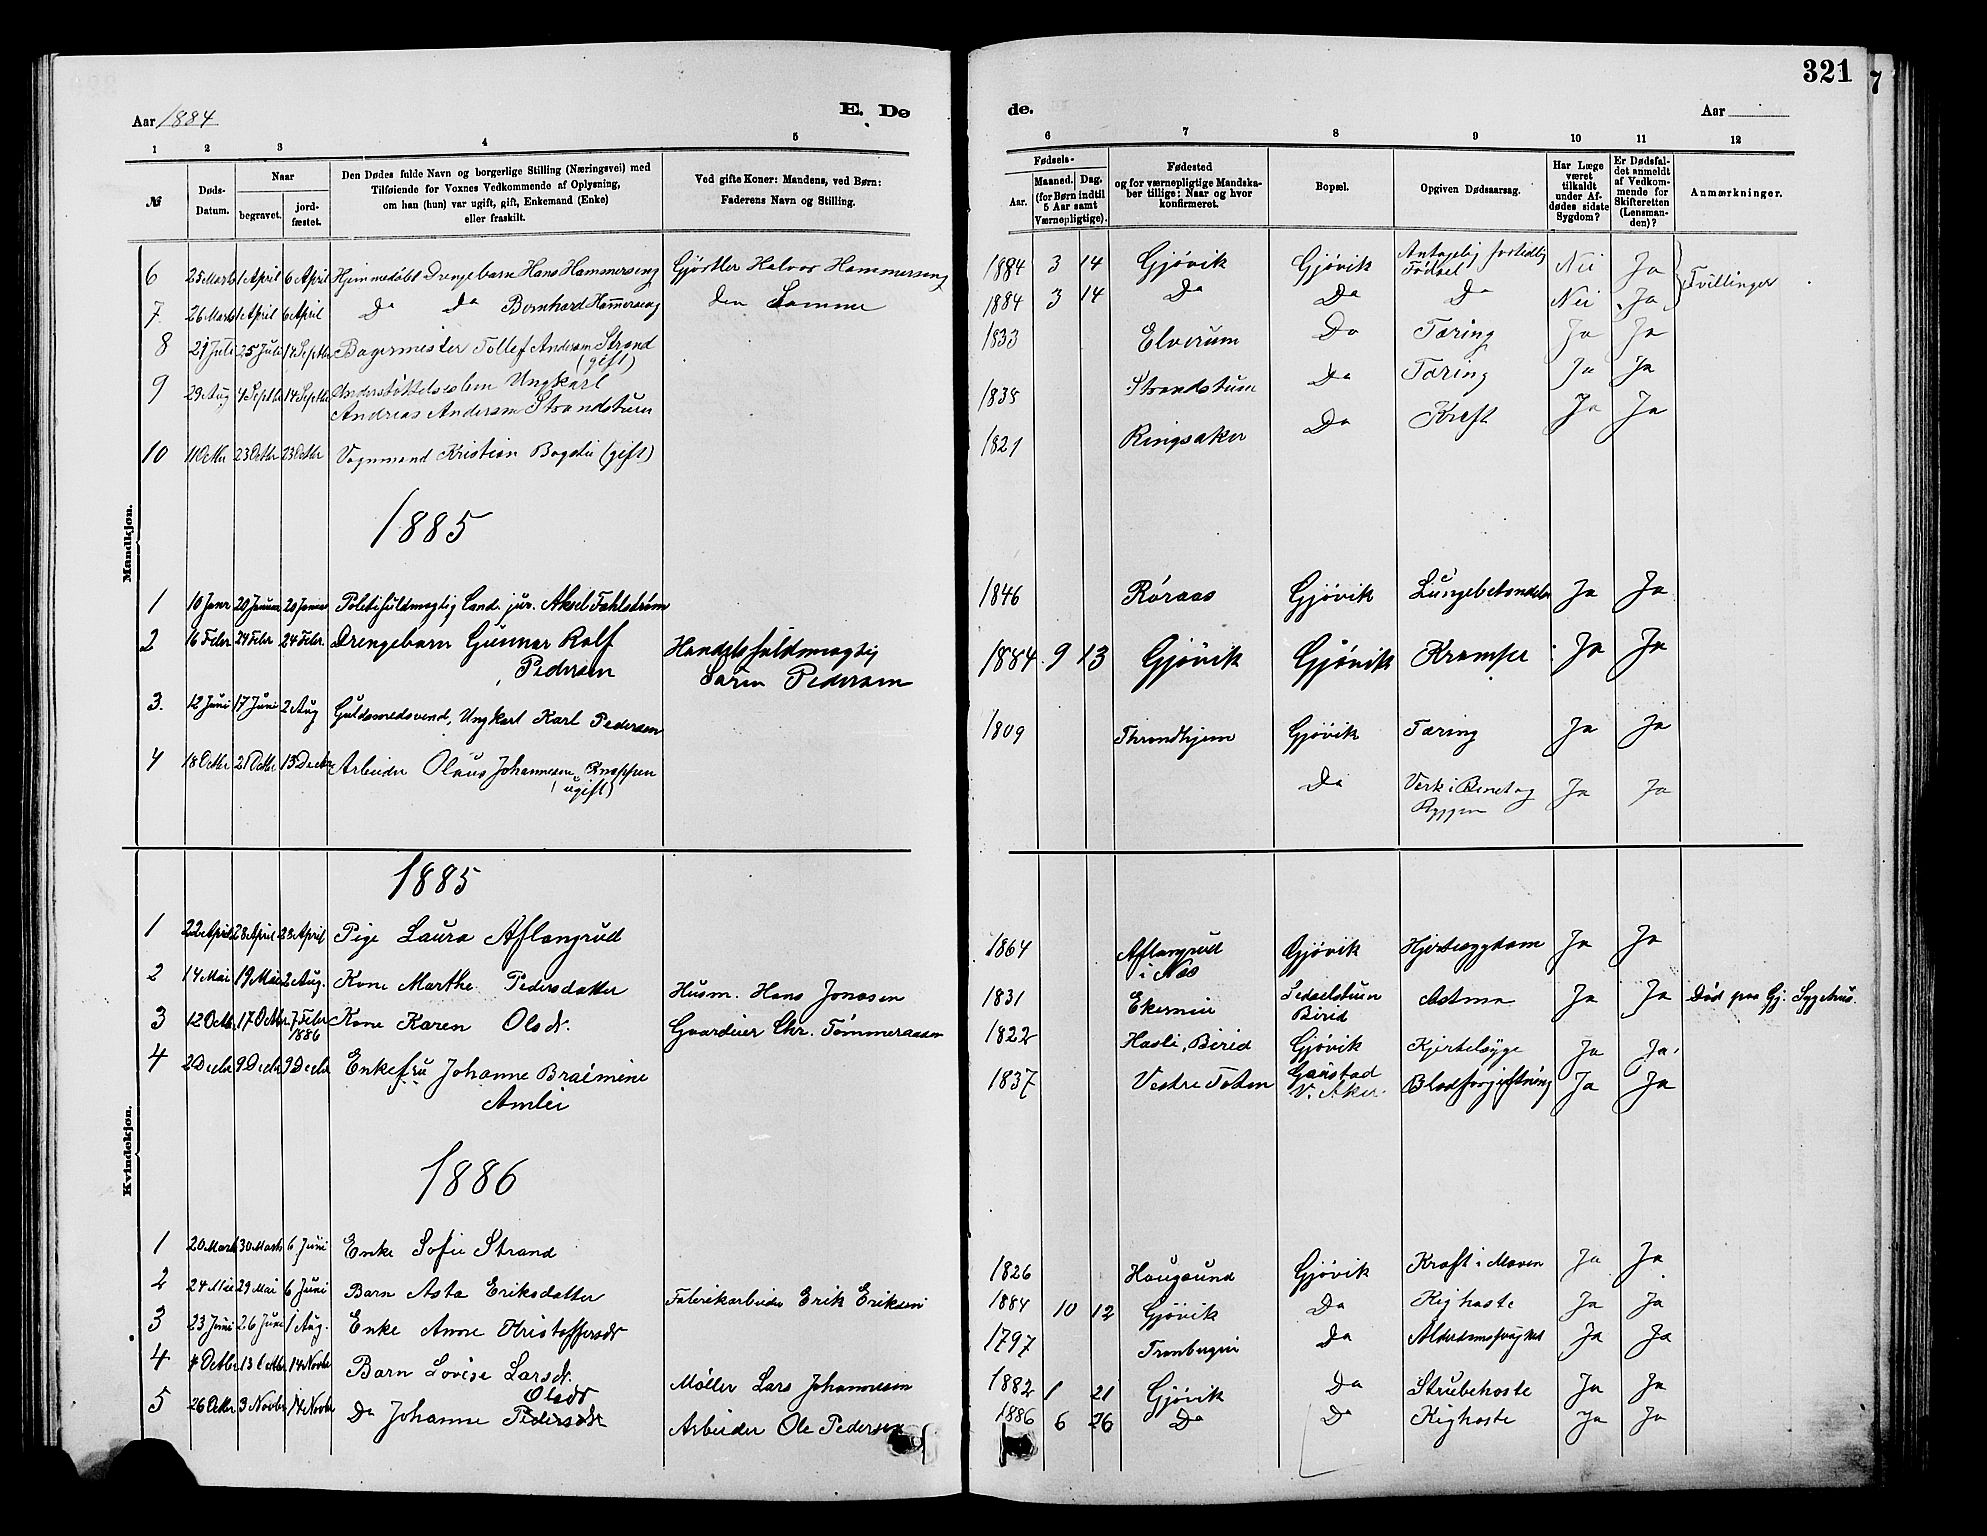 321
7
Aar 1884
E. Dø
de.
Aar
1 2 3 4 5
6 7 8 9 10 11 12
№
Døds-Datum.
Naar
begravet.
jord-fæstet.
Den Dødes fulde Navn og borgerlige Stilling (Næringsvei) med
Tilføiende for Voxnes Vedkommende af Oplysning,
om han (hun) var ugift, gift, Enkemand (Enke)
eller fraskilt.
Ved gifte Koner: Mandens, ved Børn:
Faderens Navn og Stilling.
Fødsels-
Aar.
Maaned. Dag.
(for Børn indtil
5 Aar samt
Værnepligtige).
Fødested
og for værnepligtige Mandska-
ber tillige: Naar og hvor
konfirmeret.
Bopæl.
Opgiven Dødsaarsag.
Har Læge
været
tilkaldt
under Af-
dødes sidste
Sygdom?
Er Dødsfal-
det anmeldt
af Vedkom-
mende for
Skifteretten
(Lensman-
den)?
Anmærkninger.
Mandkjøn.
6 25 Marts 1 April 6 April Hjemmedøbt Drengebarn Hans Hammerseng Gjørtler Halvor Hammerseng 1884 3 14 Gjøvik Gjøvik Antagelig fortidlig Fødsel Nei Ja Tvillinger
7. 26 Marts 1 April 6 April Do Do Bernhard Hammerseng Den Samme 1884 3 14 Do Do Do Nei Ja
8 21 Juli 25 Juli 14 Septbr Bagermester Tollef Andersen Strand (gift) 1833 Elverum Do Tæring Ja Ja
9 29 Aug 4 Septbr 14 Septbr Understøttelseslem Ungkarl
Andreas Andersen Strandstuen 1835 Strandstuen Do Tæring Ja Ja
10 11 Octbr 23 Octbr 23 Octbr Vognmand Kristian Bogstie (gift) 1821 Ringsaker Do Kreft Ja Ja
1885
1 10 Janr 20 Januar 20 Januar Politifuldmægtig Cand. jur. Aksel Fahlstrøm 1846 Røraas Gjøvik Lungebetændelse Ja Ja
2 16 Febr 24 Febr 24 Febr. Drengebarn Gunnar Rolf
Pedersen Handelsfuldmægtig
Søren Pedersen 1884 9 13 Gjøvik Gjøvik Krampe Ja Ja
3. 12 Juni 17 Juni 2 Aug Guldsmedsvend, Ungkarl Karl Pedersen 1809 Throndhjem Gjøvik Tæring Ja Ja
4 18 Octbr 21 Octbr 13 Decbr Arbeider Olaus Johannesen Knappen
(ugift) Do Værk i Benet og
Ryggen Ja Ja
Kvindekjøn.
1885
1 22 April 28 April 28 April Pige Laura Aflangrud 1864 Aflangrud
i Næs Gjøvik Hjertesygdom Ja Ja
2 14 Mai 19 Mai 2 Aug. Kone Marthe Pedersdatter Husm. Hans Jonasen 1831 Ekernin Birid Astma Ja Ja Død paa Gj. Sygehus.
3 12 Octbr 17 Octbr. 7 Febr
1886 Kone Karen Olsdr. Gaardeier Chr. Tømmeraasen 1822 Hasli, Birid Gjøvik Kjertelsyge Ja Ja
4 2 Decbr 9 Decbr 9 Decbr Enkefru Johanne Braimine
Amlie 1837 Vestre Toten Gaustad
V. Aker Blodforgiftning Ja Ja
1886
1 20 Marts 30 Marts 6 Juni Enke Sofie Strand 1826 Haugsund Gjøvik Kræft i Maven Ja Ja
2 24 Mai 29 Mai 6 Juni Barn Asta Eriksdatter Fabrikarbeider Erik Eriksen 1884 10 12 Gjøvik Do Kighoste Ja Ja
3 23 Juni 26 Juni 1 Aug. Enke Anne Kristoffersdr 1797 Do Alderdomssvaghed Ja Ja
4 4 Octbr 13 Octbr 14 Novbr Barn Lovise Larsdr. Møller Lars Johannesen 1882 1 21 Gjøvik Do Strubehoste Ja Ja
5 26 Octbr 3 Novbr 14 Novbr Do Johanne Pedersdr Olsdr Arbeider Ole Pedersen 1886 6 26 Do Do Kighoste Ja Ja